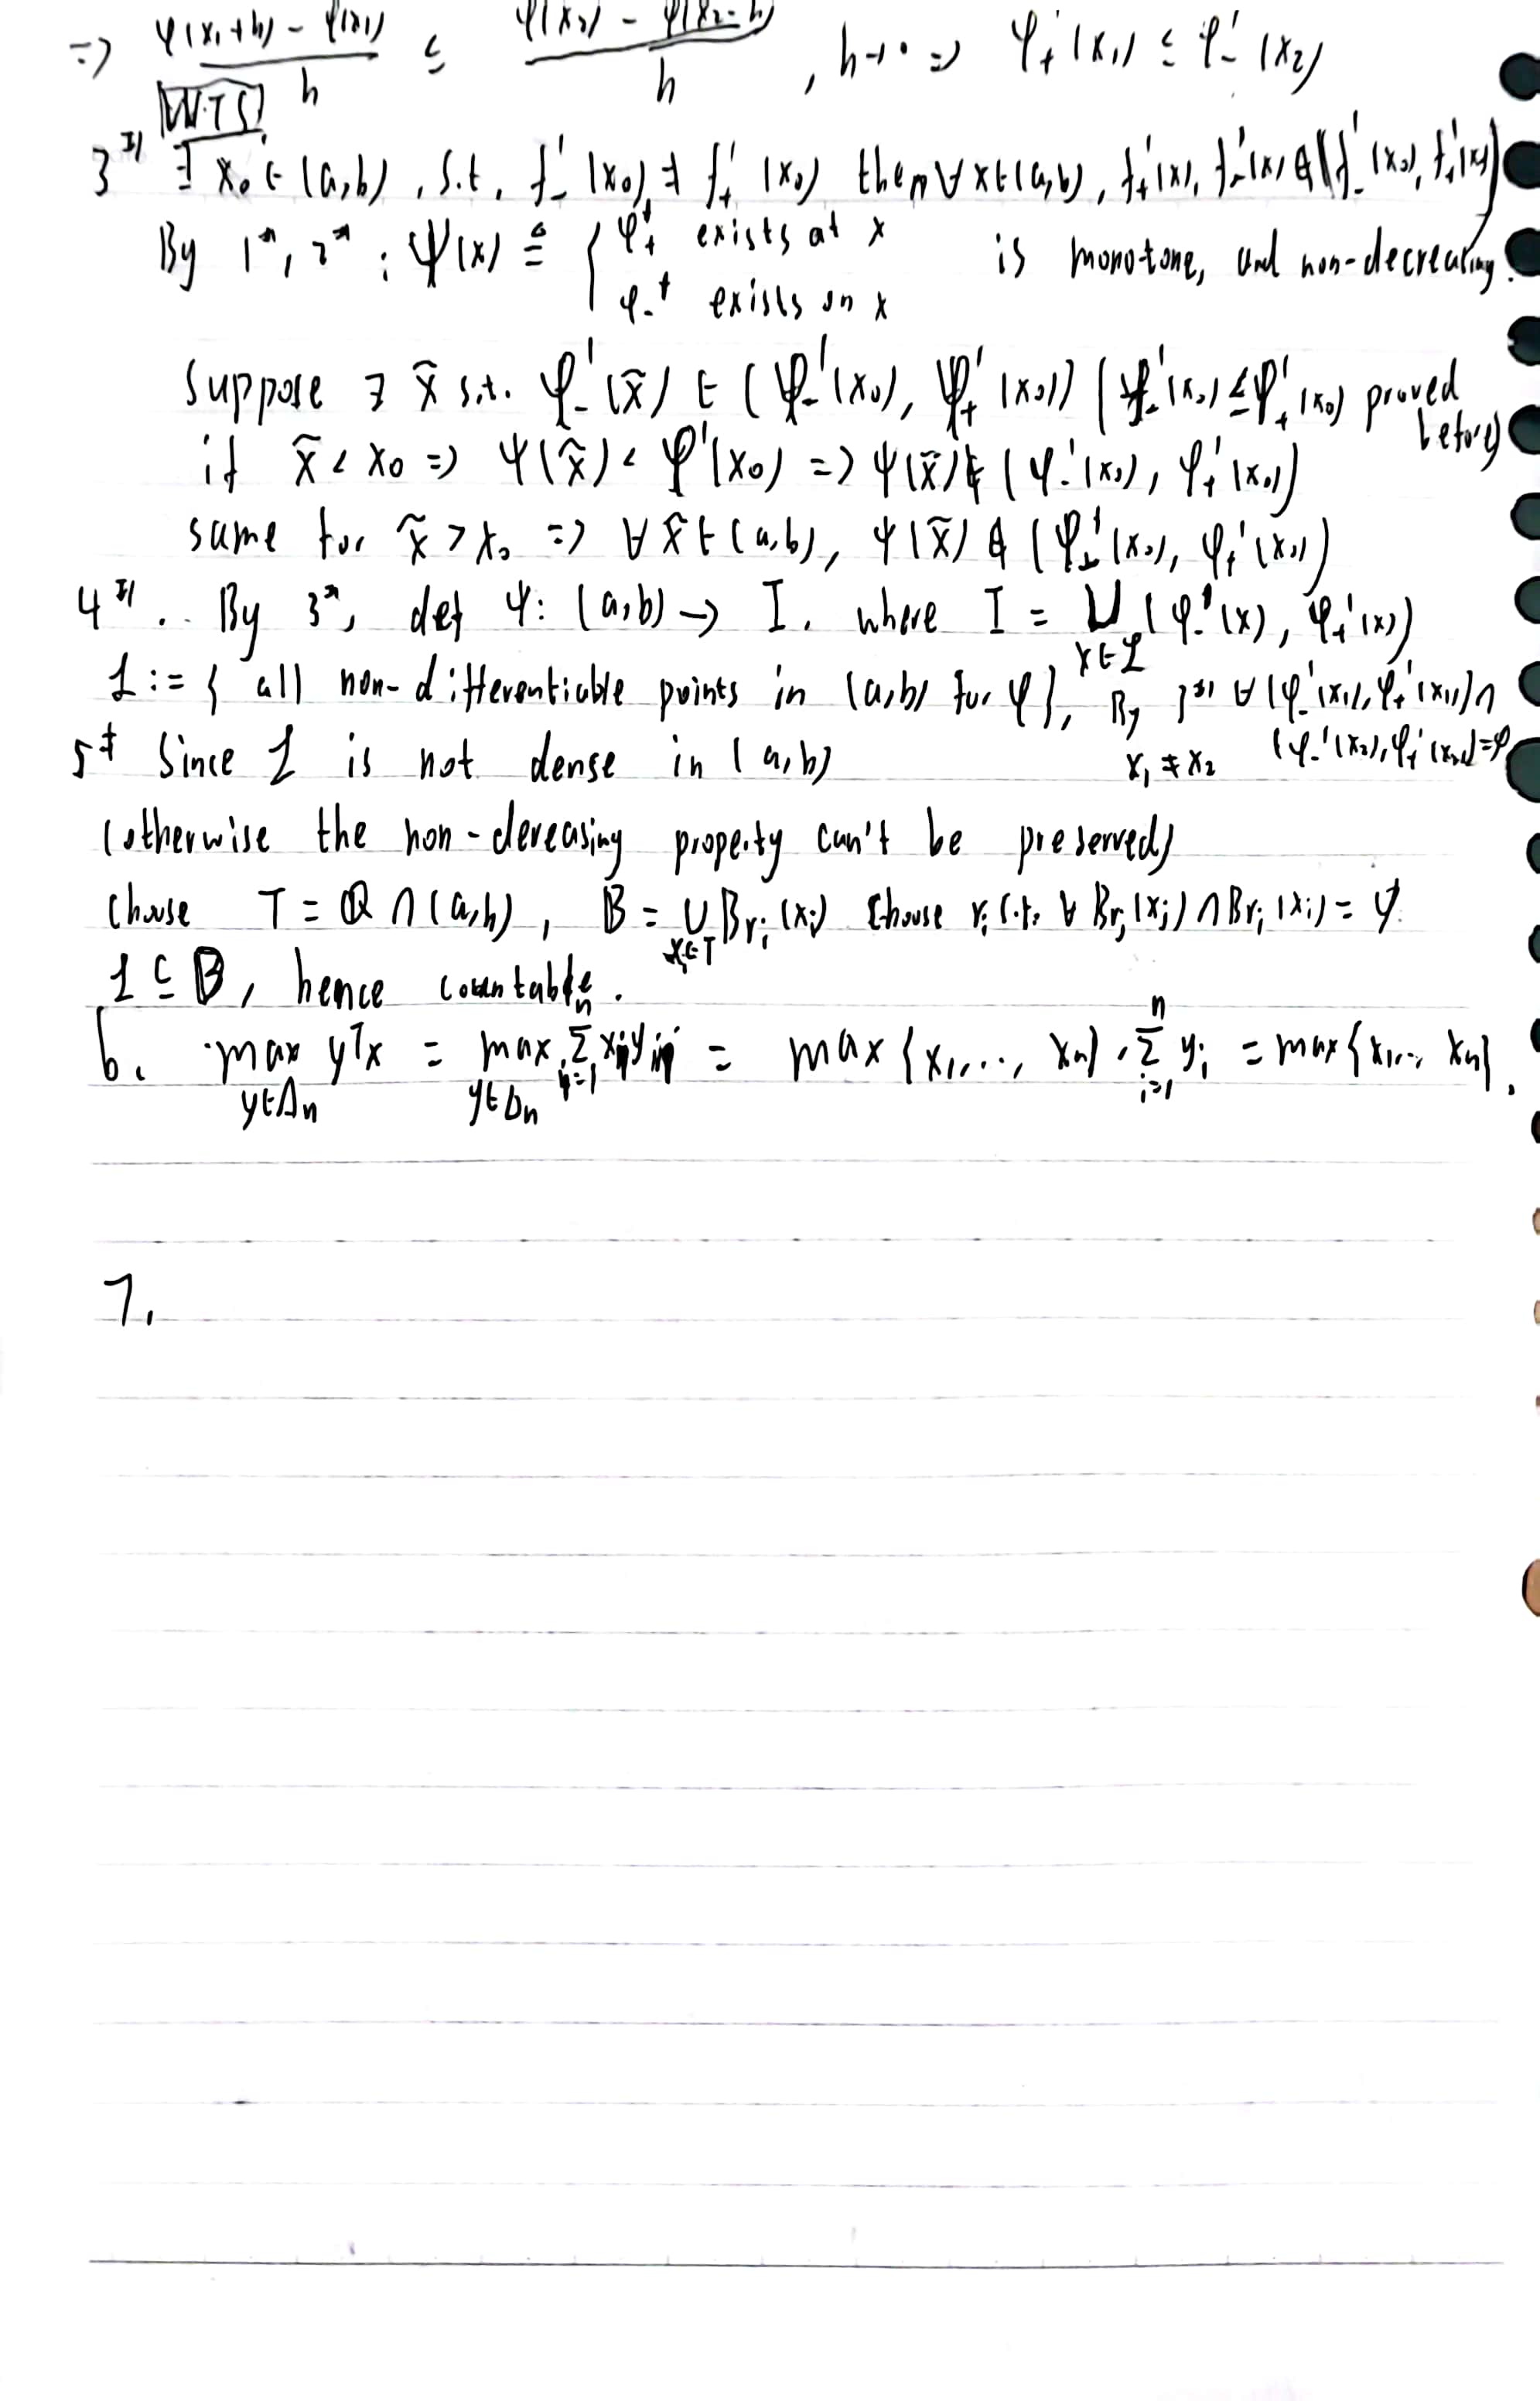 => φ(x₁+h) - φ(x₁) / h ≤ φ(x₂) - φ(x₂-h) / h , h→0 => φ₊'(x₁) ≤ φ₋'(x₂)
WTS
3# ∃ x₀ ∈ (a,b), s.t. f₋'(x₀) ≠ f₊'(x₀) then ∀ x∈(a,b), f₊'(x), f₋'(x) ∉ (f₋'(x₀), f₊'(x₀))
By 1#, 2# : ψ(x) ≜ { φ₊' exists at x is monotone, and non-decreasing.
φ₋' exists on x
Suppose ∃ x̃ s.t. φ₋'(x̃) ∈ (φ₋'(x₀), φ₊'(x₀)) (φ₋'(x₀) ≤ φ₊'(x₀) proved before)
if x̃ < x₀ => ψ(x̃) < φ'(x₀) => ψ(x̃) ∉ (φ₋'(x₀), φ₊'(x₀))
same for x̃ > x₀ => ∀ x̃ ∈ (a,b), ψ(x̃) ∉ (φ₋'(x₀), φ₊'(x₀))
4#. By 3#, def ψ: (a,b) → I. where I = ∪ x∈L (φ₋'(x), φ₊'(x))
L := { all non-differentiable points in (a,b) for φ}, By 3# ∀ (φ₋'(x₁), φ₊'(x₁)) ∩
x₁ ≠ x₂ (φ₋'(x₂), φ₊'(x₂)) = φ
5# Since L is not dense in (a,b)
(otherwise the non-dereasing property can't be preserved)
Choose T = Q ∩ (a,b), B = ∪ xᵢ∈T Brᵢ(xᵢ) Choose rᵢ s.t. ∀ Brⱼ(xⱼ) ∩ Brᵢ(xᵢ) = φ.
L ⊆ B, hence countable.
6. max y∈Δn yᵀx = max y∈Δn Σ i=1 n xᵢyᵢ = max {x₁,..., xn} · Σ i=1 n yᵢ = max{x₁..., xn}.
7.